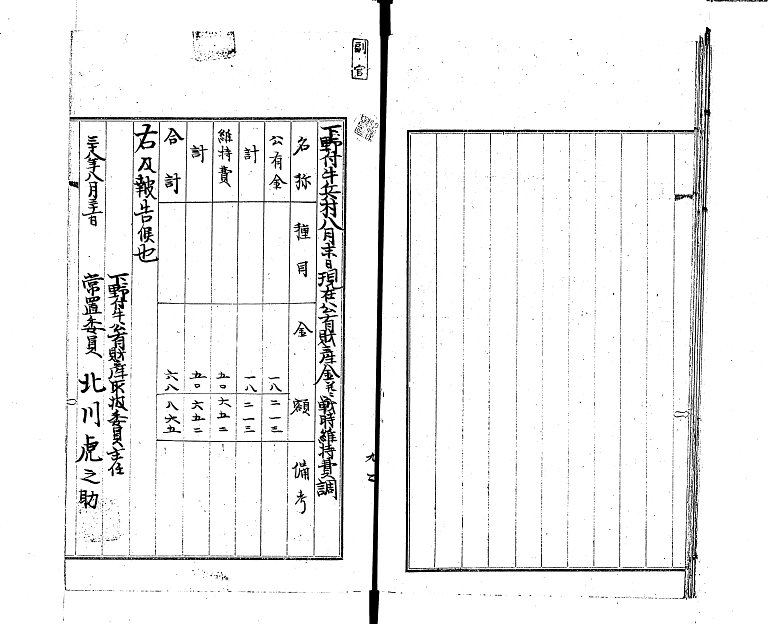 副官
下野付牛兵村八月末日現在公有財産金及ヒ戦時維持費調
名称 種目 金額 備考
公有金 一八 二一三
計 一八 二一三
維持費 五〇 六五二
計 五〇 六五二
合計 六八 八六五
右及報告候也
三十八年八月三十一日
下野付牛公有財産取扱委員主任
常置委員 北川虎之助